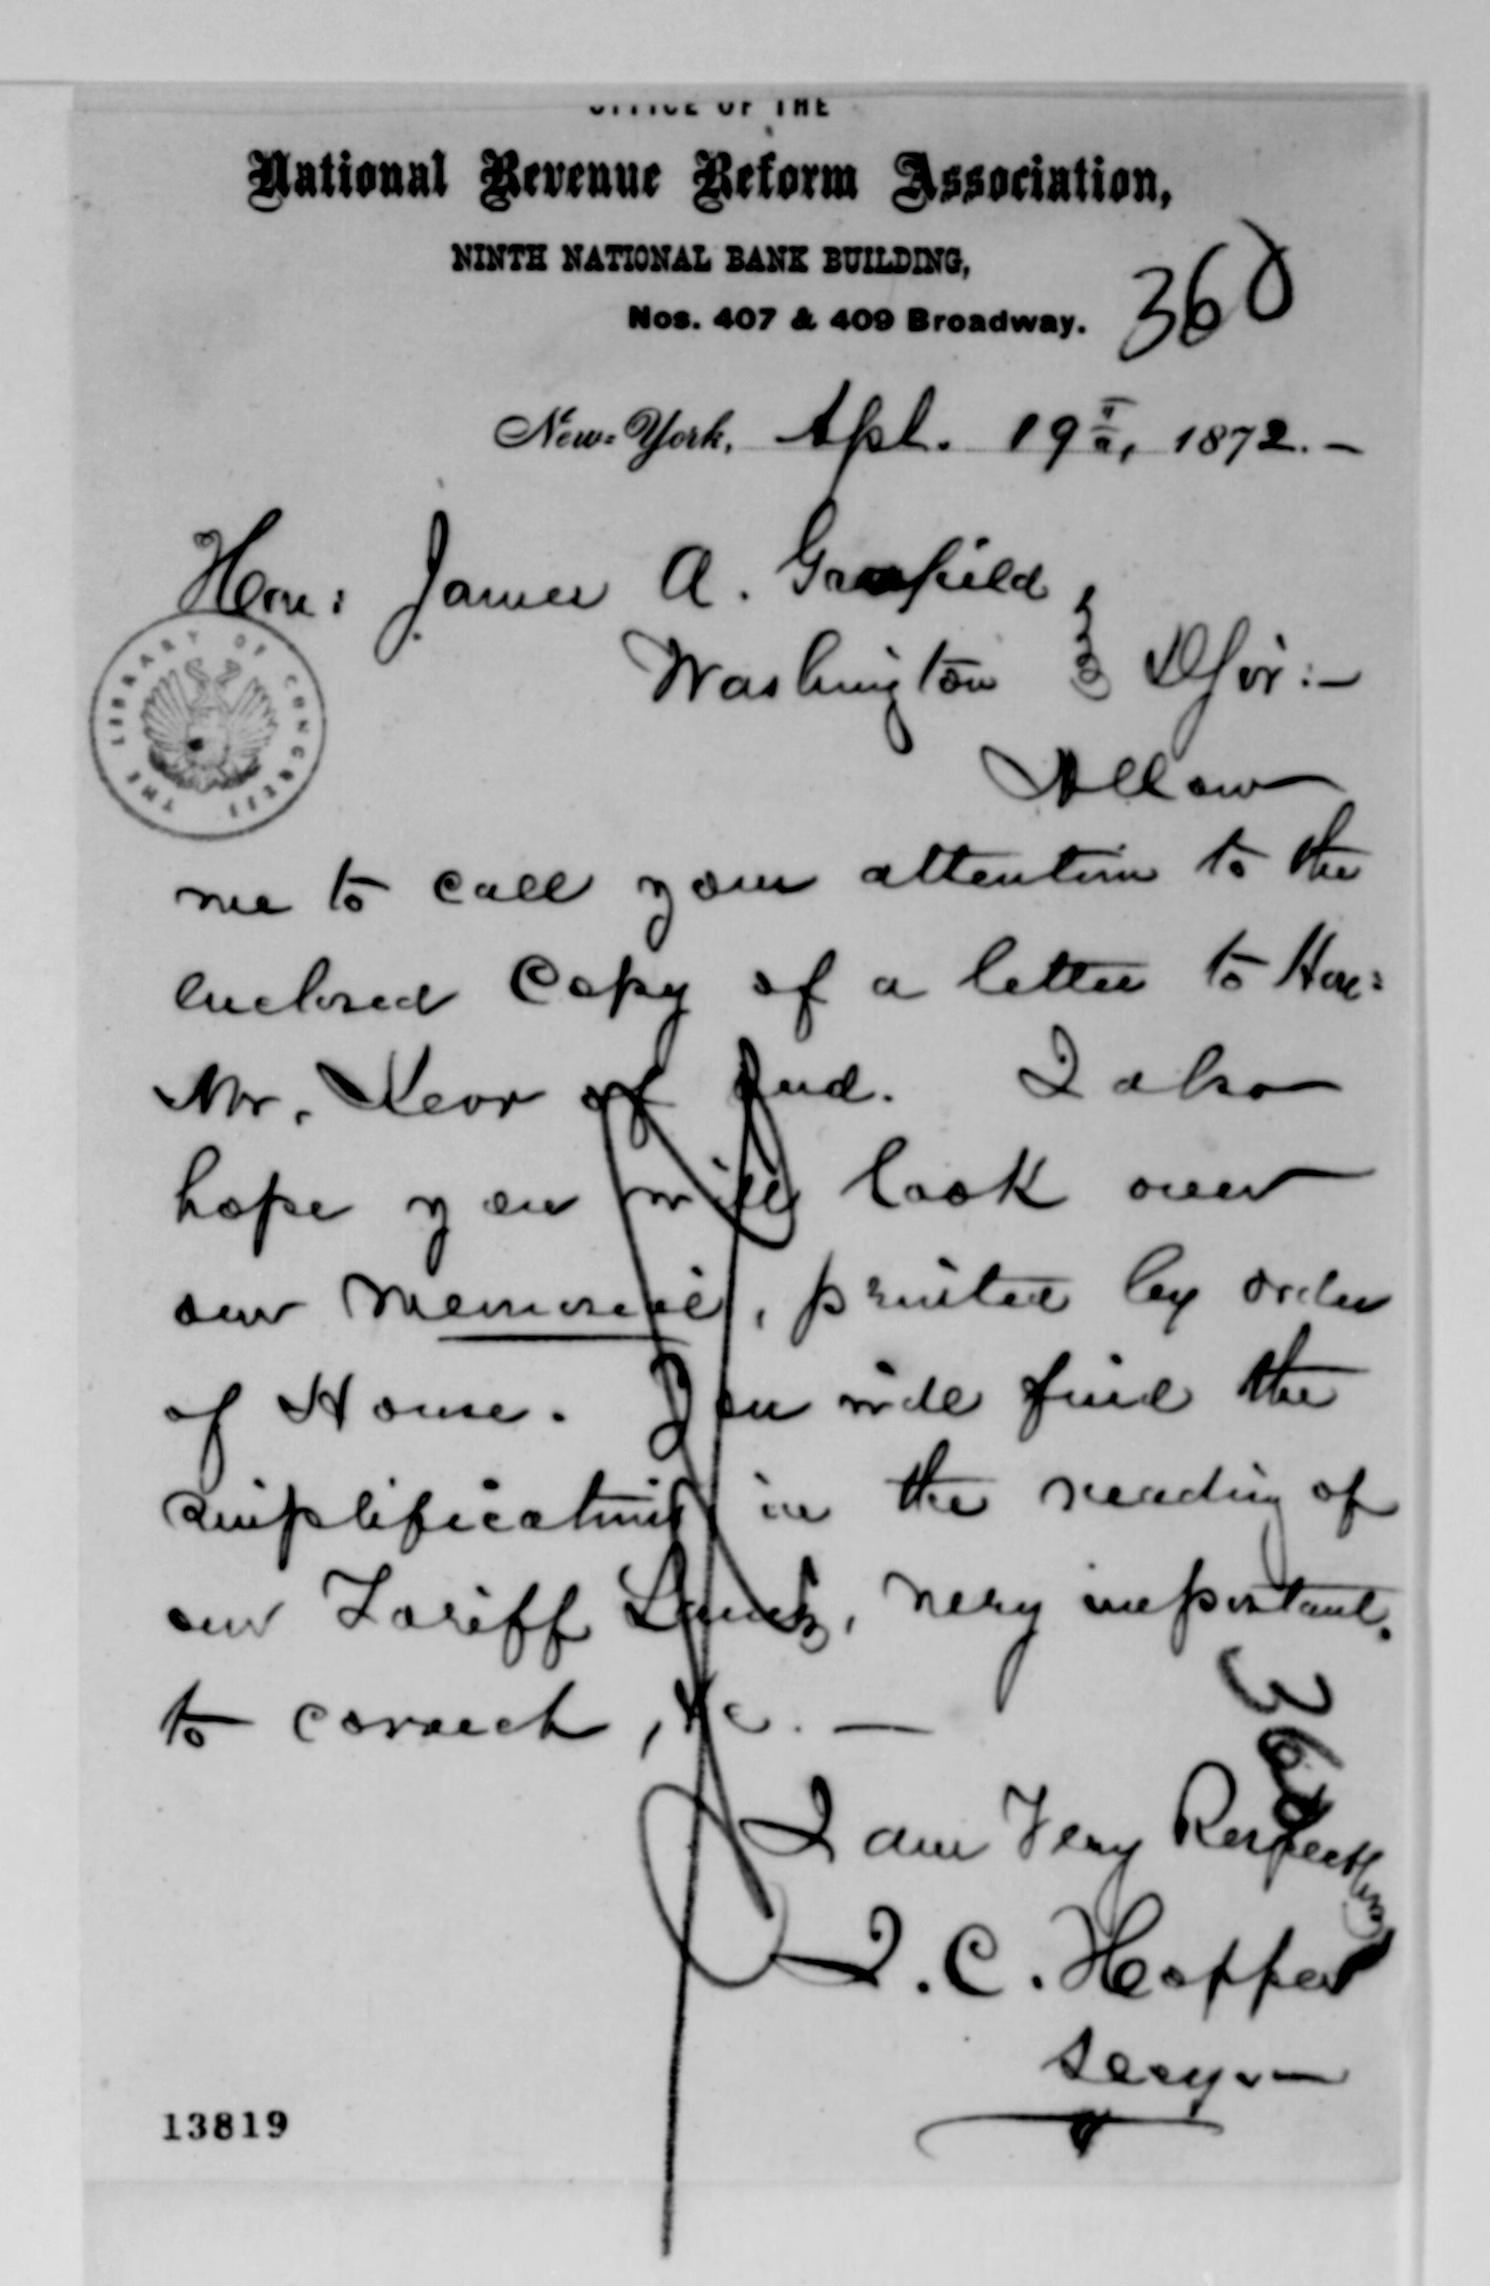 OFFICE OF THE
National Revenue Reform Association,
NINTH NATIONAL BANK BUILDING,
Nos. 407 & 409 Broadway.
360
New-York, Apl. 19th, 1872.—
Hon: James A. Garfield
Washington } D Sir:—
Allow
me to call your attention to the
enclosed Copy of a letter to Hon:
Mr. Kerr of Ind. I also
hope you will look over
our Memorial, printed by order
of House. You will find the
simplification in the reading of
our Tariff Laws, very important.
to correct, &c. —
360
I am Very Respectfully
I. C. Hopper
Secy.—
13819
THE LIBRARY OF CONGRESS